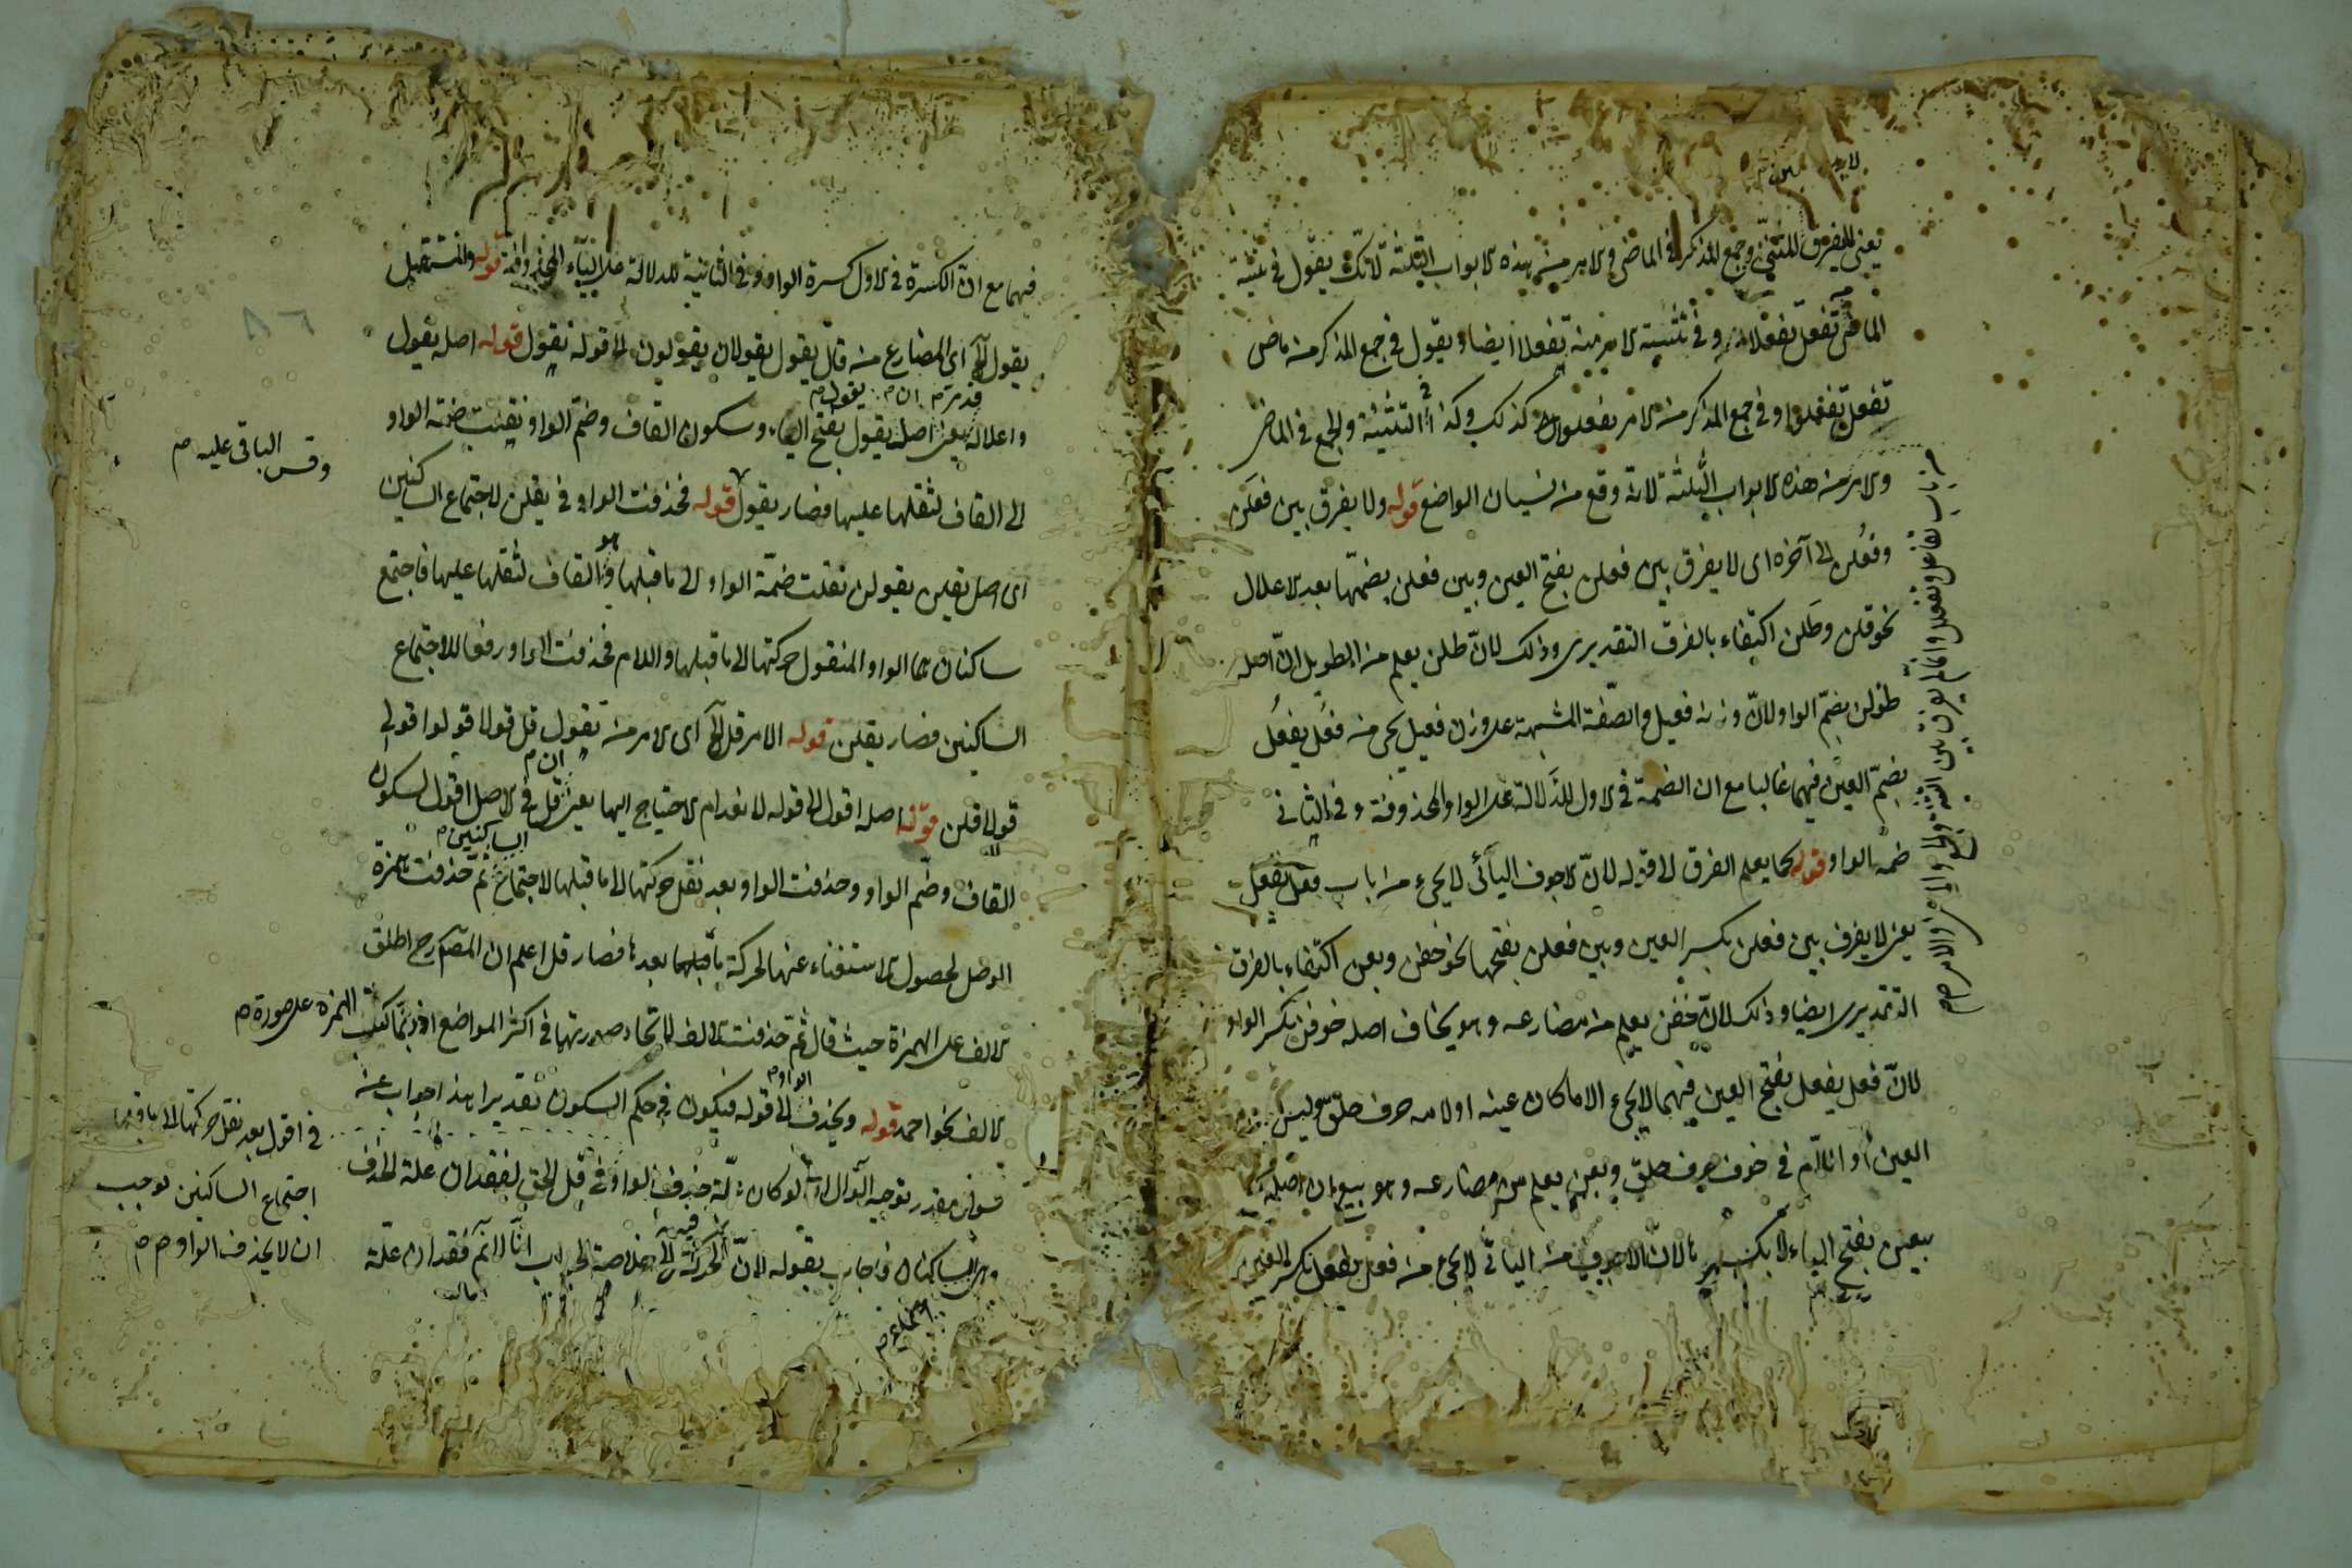 يعنى لا يفرق للمثنى وجمع المذكر فى الماضى والامر من هذه الابواب الثلثة لانك يقول فى تثنية
الماضى تفعل تفعلا وفى تثنية الامر منه تفعلا ايضا ويقول فى جمع المذكر من ماضى
تفعل تفعلوا وفى جمع المذكر من الامر تفعلوا كذلك وكذا التثنية والجمع فى الماضى
والامر من هذه الابواب الثلثة لانه وقع من نسيان الواضع قوله ولا يفرق بين فعلن
وفعلن الى آخره اى لا يفرق بين فعلن بفتح العين وبين فعلن بضمها بعد الاعلال
نحو قلن وطلن اكتفاء بالفرق التقديرى وذلك لان طلن يعلم من الطويل ان اصله
طولن بضم الواو لان وزنه فعيل والصفة المشبهة على وزن فعيل يجى من فعل يفعل
بضم العين فيهما غالبا مع ان الضمة فى الاول للدلالة على الواو المحذوفة وفى الثانى
ضمة الواو قوله كما يعلم الفرق الى قوله لان الاجوف اليائى لا يجىء من باب فعل يفعل
يعنى لا يفرق بين فعلن بكسر العين وبين فعلن بفتحها نحو خفن وبعن اكتفاء بالفرق
التقديرى ايضا وذلك لان خفن يعلم من مضارعه وهو يخاف اصله خوفن بكسر الواو
لان فعل يفعل بفتح العين فيهما لا يجىء الا ما كان عينه او لامه حرف حلق وليس
العين او اللام فى خوف حرف حلق وبعن يعلم من مضارعه وهو يبيع ان اصله
بيعن بفتح الياء لا بكسرها لان الاجوف من اليائى لا يجىء من فعل يفعل بكسر العين
من باب تفاعل وتفعل
فيهما مع ان الكسرة فى الاول كسرة الواو وفى الثانية للدلالة على الياء المحذوفة قوله والمستقبل
يقول الخ اى المضارع من قال يقول يقولان يقولون الى قوله نقول قوله اصله يقول
قدم ان يقول
واعلاله يعنى اصله يقول بفتح الياء وسكون القاف وضم الواو نقلت ضمة الواو
الى القاف لثقلها عليها فصار يقول قوله فحذفت الواو فى يقلن لاجتماع الساكنين
اى اصل يقلن يقولن نقلت ضمة الواو الى ما قبلها وهو القاف لثقلها عليها فاجتمع
ساكنان هما الواو المنقول حركتها الى ما قبلها واللام فحذفت الواو رفعا للاجتماع
الساكنين فصار يقلن قوله الامر قل الخ اى الامر من تقول قل قولا قولوا قولى
قولا قلن قوله اصله اقول الى قوله لانعدام الاحتياج اليها يعنى ان قل فى الاصل اقول بسكون
القاف وضم الواو وحذفت الواو بعد نقل حركتها الى ما قبلها لاجتماع الساكنين ثم حذفت همزة
الوصل لحصول الاستغناء عنها لحركة ما قبلها بعدها فصار قل اعلم ان المص رح اطلق
الالف على الهمزة حيث قال ثم حذفت الالف لاتحاد صورتهما فى اكثر المواضع اذ ربما كتب الهمزة على صورة
الالف نحو احمد قوله ويحذف الواو الى قوله فيكون فى حكم السكون تقديرا هذا جواب عن
سؤال مقدر توجيه السؤال انه لو كان علة حذف الواو فى قل الحق لفقدان علة الحذف
وهى الساكنان فاجاب بقوله لان الحركة فيه الخ خلاصة الجواب انا لانم فقدان علة
وقس الباقى عليه م
فى اقول بعد نقل حركتها الى ما قبلها
اجتماع الساكنين لوجب
ان لا يحذف الواو م م